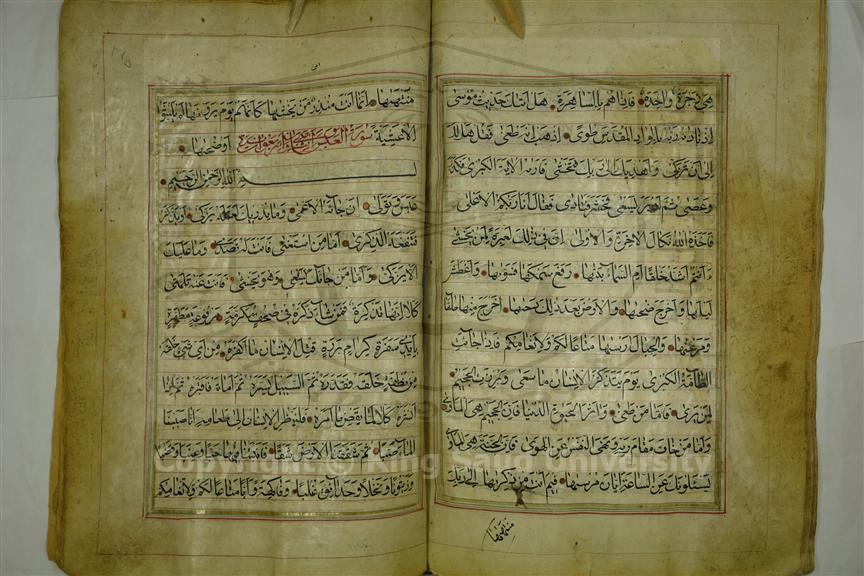 هي زجرة واحدة فاذاهم بالساهرة هل اتيك حديث موسى
اذ ناديه ربه بالواد المقدس طوى اذهب الى فرعون انه طغى فقل هل لك
الى ان تزكى واهديك الى ربك فتخشى فاريه الاية الكبرى فكذب
وعصى ثم ادبر يسعى فحشر فنادى فقال انا ربكم الاعلى
فاخذه الله نكال الاخرة والاولى ان في ذلك لعبرة لمن يخشى
ءانتم اشد خلقا ام السماء بنيها رفع سمكها فسويها واغطش
ليلها واخرج ضحيها والارض بعد ذلك دحيها اخرج منها ماءها
ومرعيها والجبال ارسيها متاعا لكم ولانعامكم فاذا جاءت
الطامة الكبرى يوم يتذكر الانسان ما سعى وبرزت الجحيم
لمن يرى فاما من طغى واثر الحيوة الدنيا فان الجحيم هي الماوى
واما من خاف مقام ربه ونهى النفس عن الهوى فان الجنة هي الماوى
يسئلونك عن الساعة ايان مرسيها فيم انت من ذكريها الى ربك
منتهيها
منتهيها انما انت منذر من يخشيها كانهم يوم يرونها لم يلبثوا
الا عشية او ضحيها
سورة العبس
بسم الله الرحمن الرحيم
عبس وتولى ان جاءه الاعمى وما يدريك لعله يزكى او يذكر
فتنفعه الذكرى اما من استغنى فانت له تصدى وما عليك
الا يزكى واما من جاءك يسعى وهو يخشى فانت عنه تلهى
كلا انها تذكرة فمن شاء ذكره في صحف مكرمة مرفوعة مطهرة
بايدي سفرة كرام بررة قتل الانسان ما اكفره من اي شيء خلقه
من نطفة خلقه فقدره ثم السبيل يسره ثم اماته فاقبره ثم اذا
انشره كلا لما يقض ما امره فلينظر الانسان الى طعامه انا صببنا
الماء صبا ثم شققنا الارض شقا فانبتنا فيها حبا وعنبا وقضبا
وزيتونا ونخلا وحدائق غلبا وفاكهة وابا متاعا لكم ولانعامكم